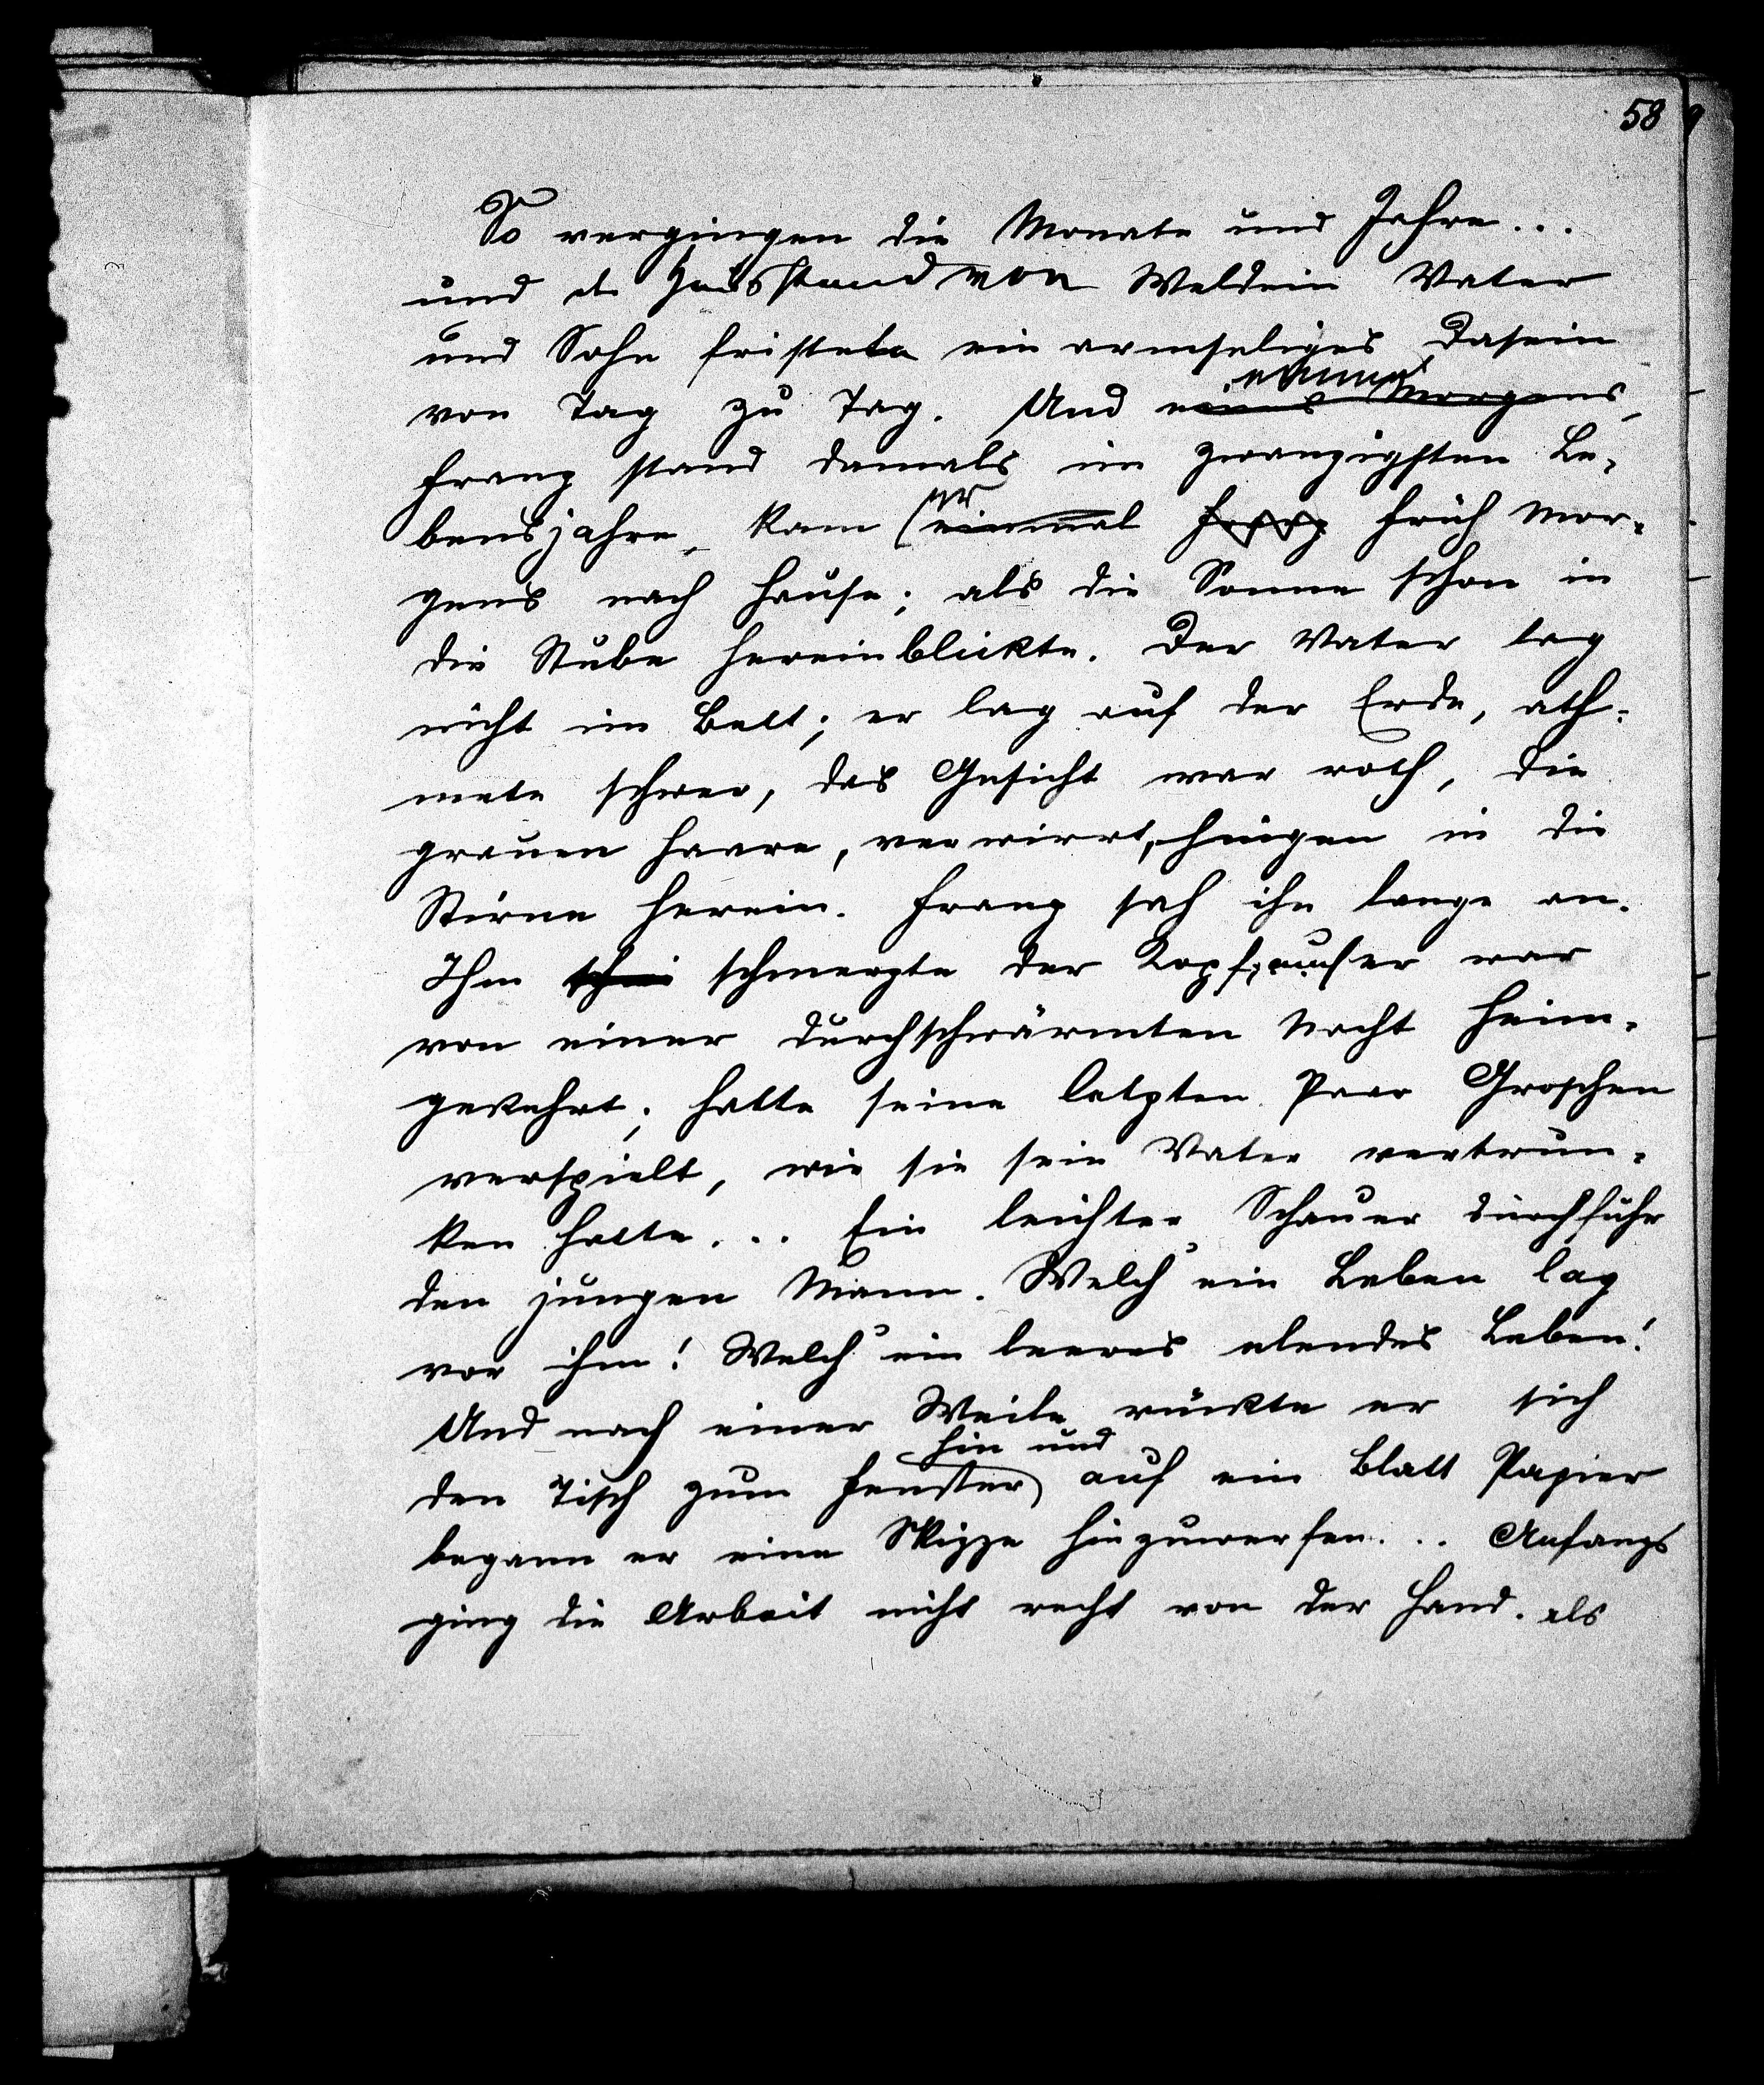 58
So vergingen die Monate und Jahre...
und der Hausstand von Weldein Vater
und Sohn fristete ein armseliges Dasein
einmal
von Tag zu Tag. Und eines Morgens,
Franz stand damals im zwanzigsten Le-
er
bensjahre, kam einmal Franz früh Mor-
gens nach Hause; als die Sonne schon in
die Stube hereinblickte. Der Vater lag
nicht im Bett; er lag auf der Erde, ath-
mete schwer, das Gesicht war roth, die
grauen Haare, verwirrt, hingen in die
Stirne herein. Franz sah ihn lange an.
Ihm schmerzte der Kopf; auch er war
von einer durchschwärmten Nacht heim-
gekehrt; hatte seine letzten Paar Groschen
verspielt, wie sie sein Vater vertrun-
ken hatte... Ein leichter Schauer durchfuhr
den jungen Mann. Welch' ein Leben lag
vor ihm! Welch' ein leeres elendes Leben!
Und nach einer Weile rückte er sich
hin und
den Tisch zum Fenster auf ein Blatt Papier
begann er eine Skizze hinzuwerfen... Anfangs
ging die Arbeit nicht recht von der Hand. als